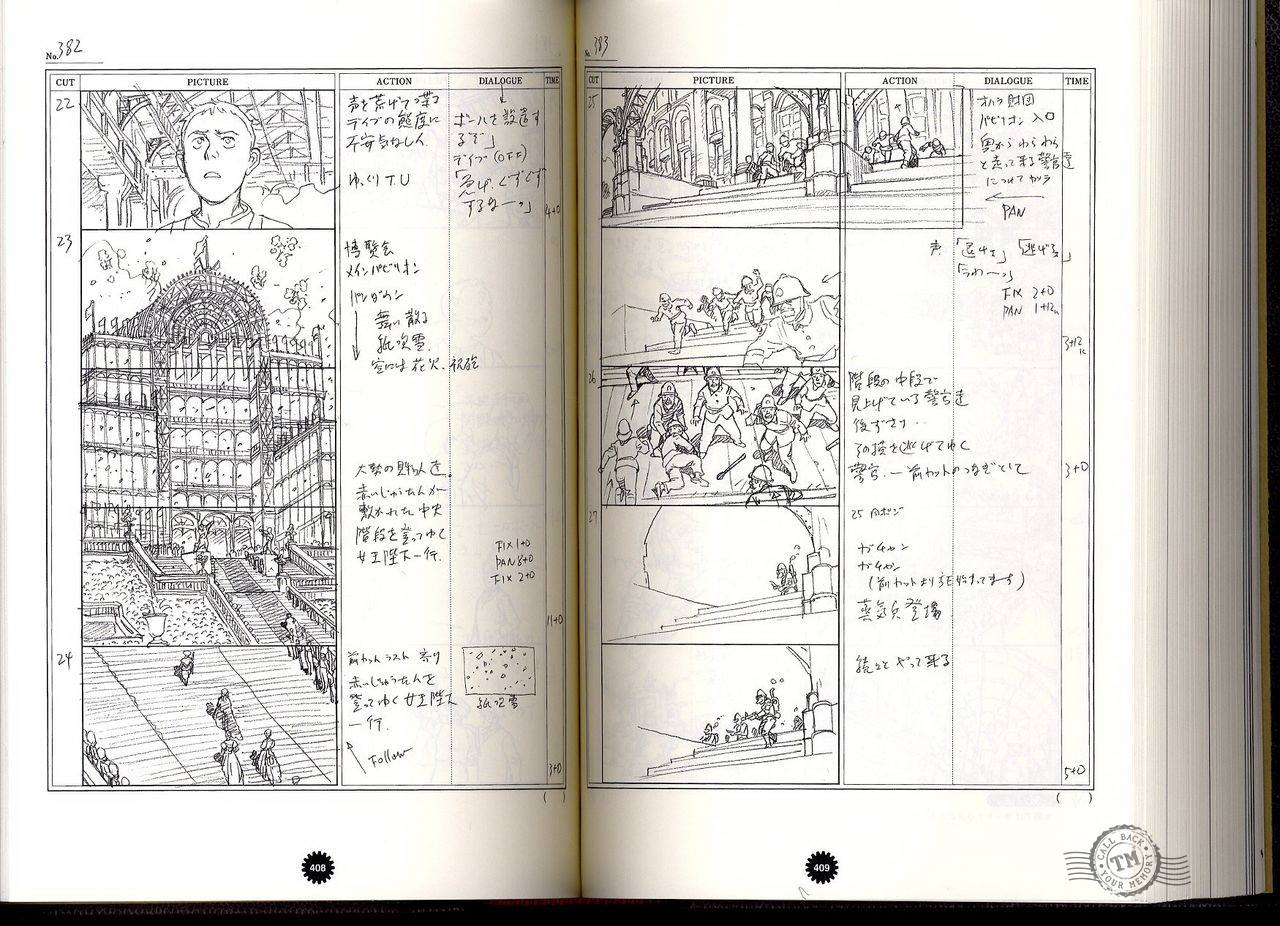 No. 382
CUT PICTURE ACTION DIALOGUE TIME
22
声を荒げて喋る
デイブの態度に
不安気なし人
ゆっくりT.U
ポンプを設置す
るぞ」
デイブ(OFF)
「急げ、ぐずぐず
するなーっ」
4+0
23
博覧会
メインパビリオン
パンダウン
舞い散る
紙吹雪
空には花火、祝砲
大勢の見物人達。
赤いじゅうたんが
敷かれた中央
階段を登ってゆく
女王陛下一行。
FIX 1+0
PAN 8+0
FIX 2+0
11+0
24
前カットラスト寄り
赤いじゅうたんを
登ってゆく女王陛下
一行。
Follow
紙吹雪
3+0
( )
408
No. 383
CUT PICTURE ACTION DIALOGUE TIME
25
オハラ財団
パビリオン入口
奥からわらわら
と走って来る警官達
につけてカメラ
PAN
声
「逃げろ」
「うわーっ」
FIX 2+0
PAN 1+12
3+12
26
階段の中段で
見上げている警官達
後ずさり・・
その横を逃げてゆく
警官. ー前カットのつなぎとして
3+0
27
25同ポジ
ガチャン
ガチャン
蒸気兵登場
続々とやって来る
5+0
( )
409
CALL BACK
TM
YOUR MEMORY